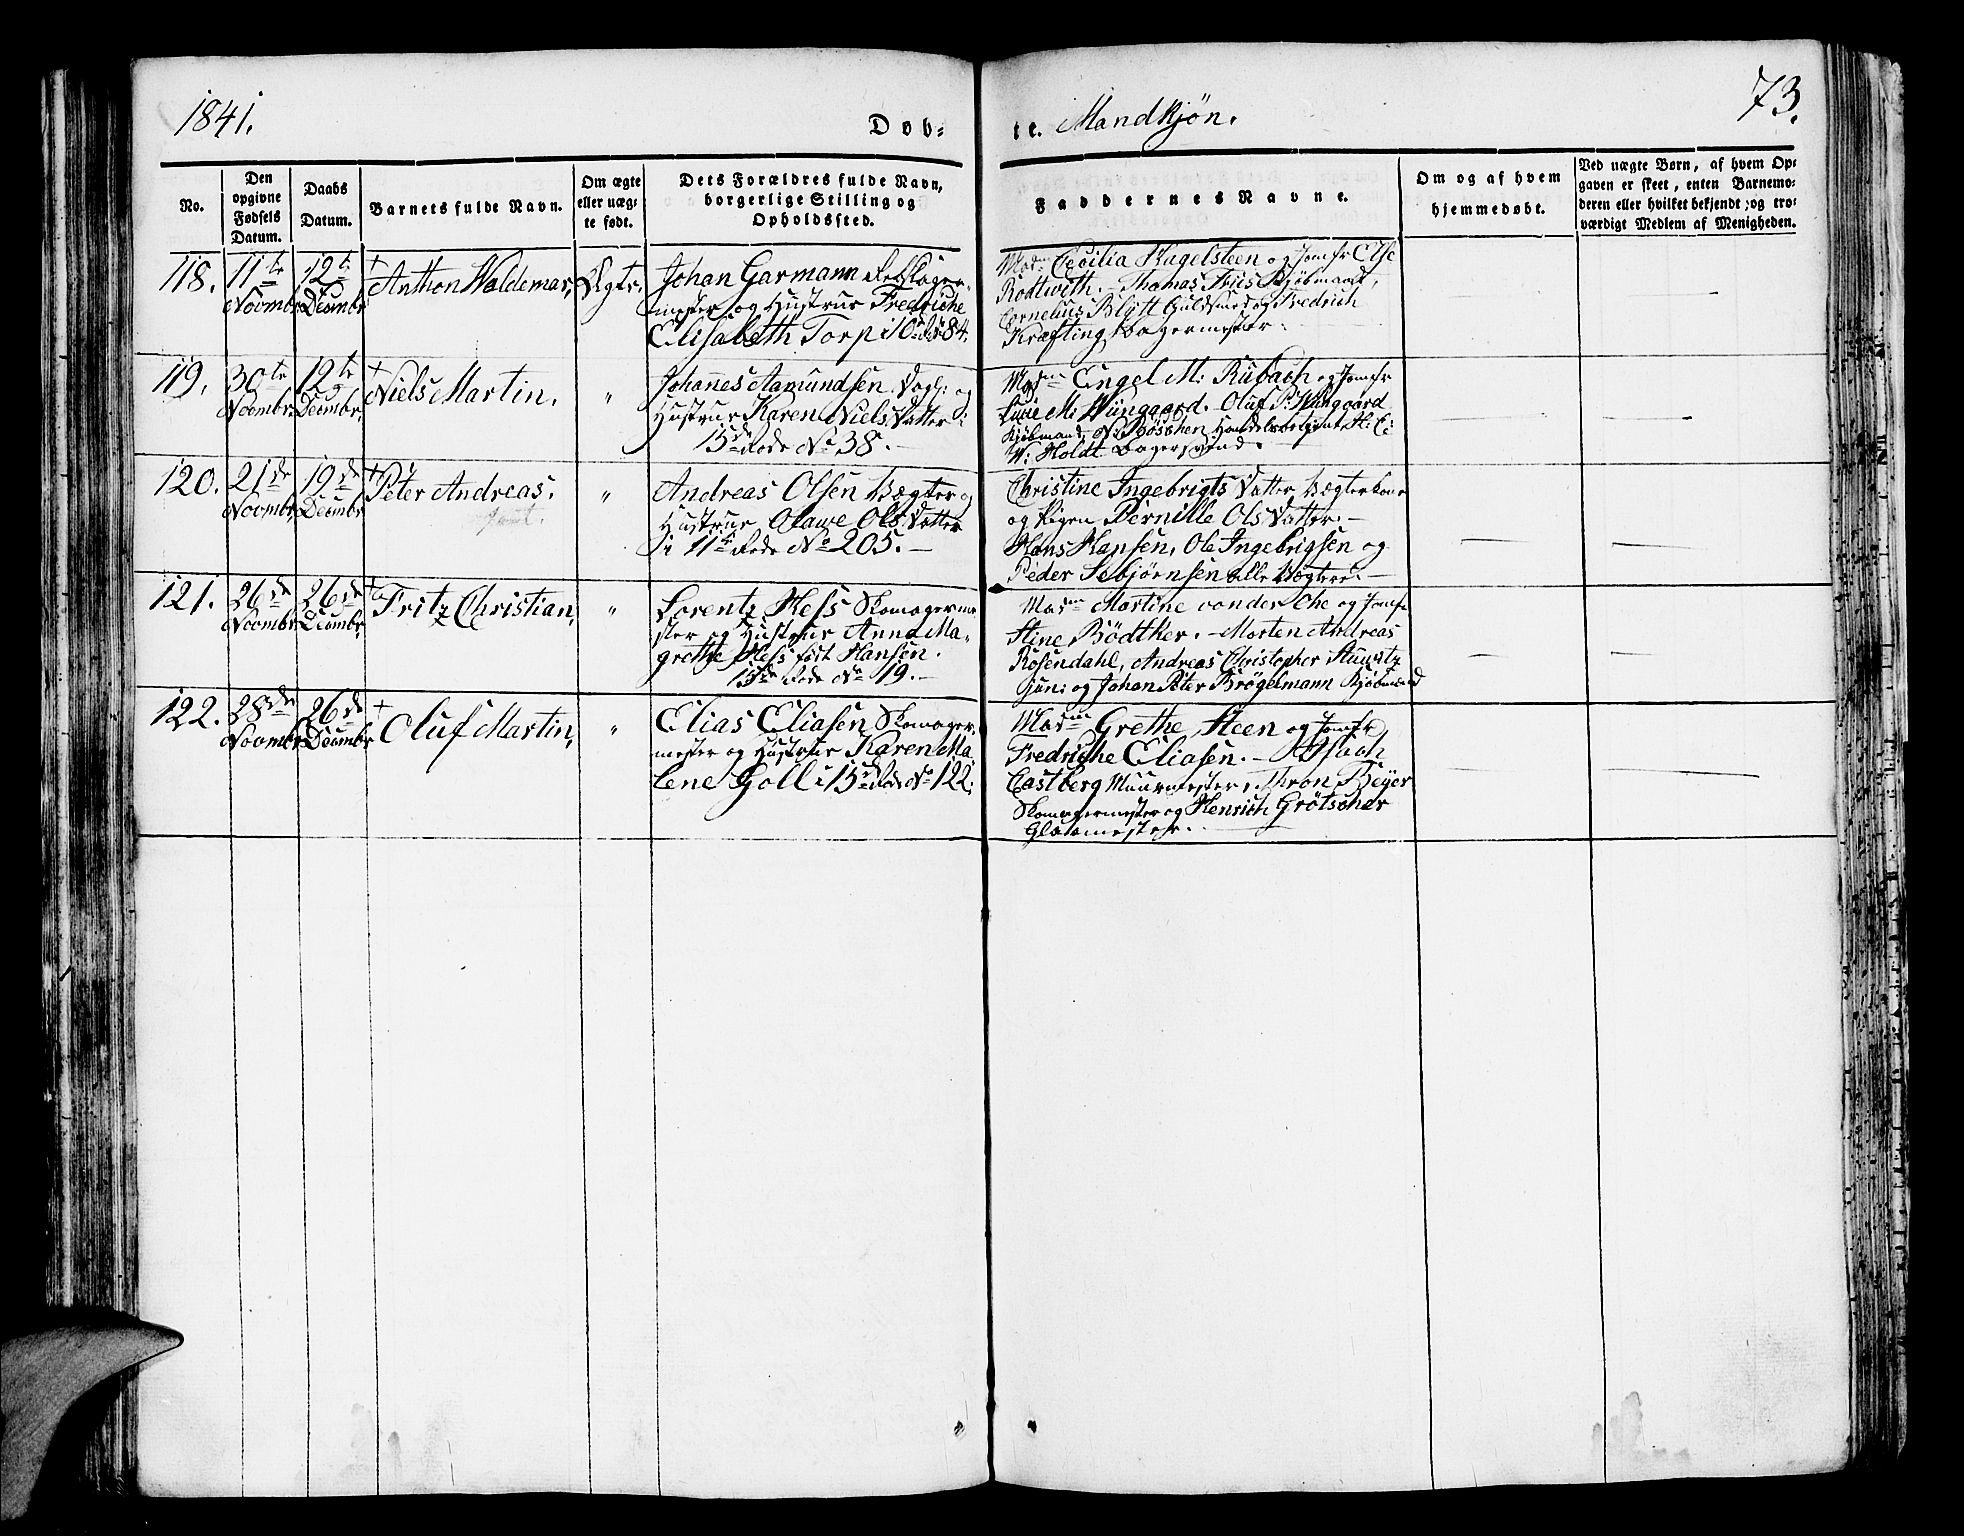 1841.
Døb=
te. Mandkjøn.
73.
No.
Den opgivne Fødsels Datum.
Daabs Datum.
Barnets fulde Navn.
Om ægte eller uæg= te født.
Dets Forældres fulde Navn, borgerlige Stilling og Opholdsted.
Faddernes Navne.
Om og af hvem hjemmedøbt.
Ved uægte Børn, af hvem Op= gaven er skeet, enten Barnemo= deren eller hvilket bekjendt, og tro= værdigt Medlem af Menigheden.
118. 11te Novmbr. 12te Decmbr. + Anthon Waldemar, Ægte,
Johan Garmann Rebslager=
mester og Hustrue Fredriche
Elisabeth Torp i 10de Rode 84.
Madm Cecilia Hagelsteen og Jomfr Else
Rodtwith. – Thomas Friis Kjøbmand,
Cornelius Blytt Guldsmed og Fredrich
Kræfting Bagermester.
— —
119. 30te Novmbr. 12te Decmbr. + Niels Martin. "
Johannes Aamundsen Dagl: og
Hustrue Karen Niels Datter i
15de Rode No 38. –
Madm Engel M: Rubach og Jomfr
M: Wiingaard. Oluf P. Wiingaard
Kjøbmand, N: Böschen Handelsbetjent H: C:
W: Holdt Bagersvend.
— —
120. 21de Novmbr. 19de Decmbr. + Peter Andreas. "
Andreas Olsen Vægter og
Hustrue Olawe Ols Datter
i 11te Rode No 205. –
Christine Ingebrigts Datter Vægterkone
og Pigen Pernille Ols Datter. –
Hans Hansen, Ole Ingebrigsen og
Peder Sebjörnsen alle Vægtere. –
— —
121. 26de Novmbr. 26de Decmbr. + Fritz Christian, "
Lorentz Hess Skomagerme=
ster og Hustrue Anna Ma=
grethe Hess født Hansen.
15de Rode No 19. –
Madm Martine von der Ohe og Jomfr
Stine Bödtker. – Morten Andreas
Rosendahl, Andreas Christopher
jun: og Johan Peter Brögelmann Kjøbmænd
— —
122. 28de Novmbr. 26de Decmbr. + Oluf Martin, "
Elias Eliasen Skomager=
mester og Hustrue Karen Ma=
lene Goll i 15de Rode No 122.
Madm Grethe Steen og Jomfr
Fredriche Eliasen. – Isach
Castberg Muurmester, Thron Beyer
Skomagermester og Henrich Grötscher
Glasmester.
— —